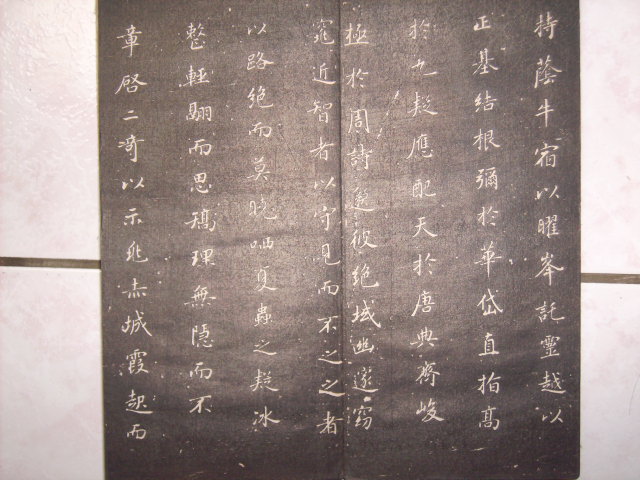 持蔭牛宿以曜峯託靈越以
正基結根彌於華岱直指高
於九疑應配天於唐典齊峻
極於周詩邈彼絕域幽邃窈
窕近智者以守見而不之之者
以路絕而莫曉哂夏蟲之疑冰
整輕翮而思矯理無隱而不
章啓二奇以示兆赤城霞起而